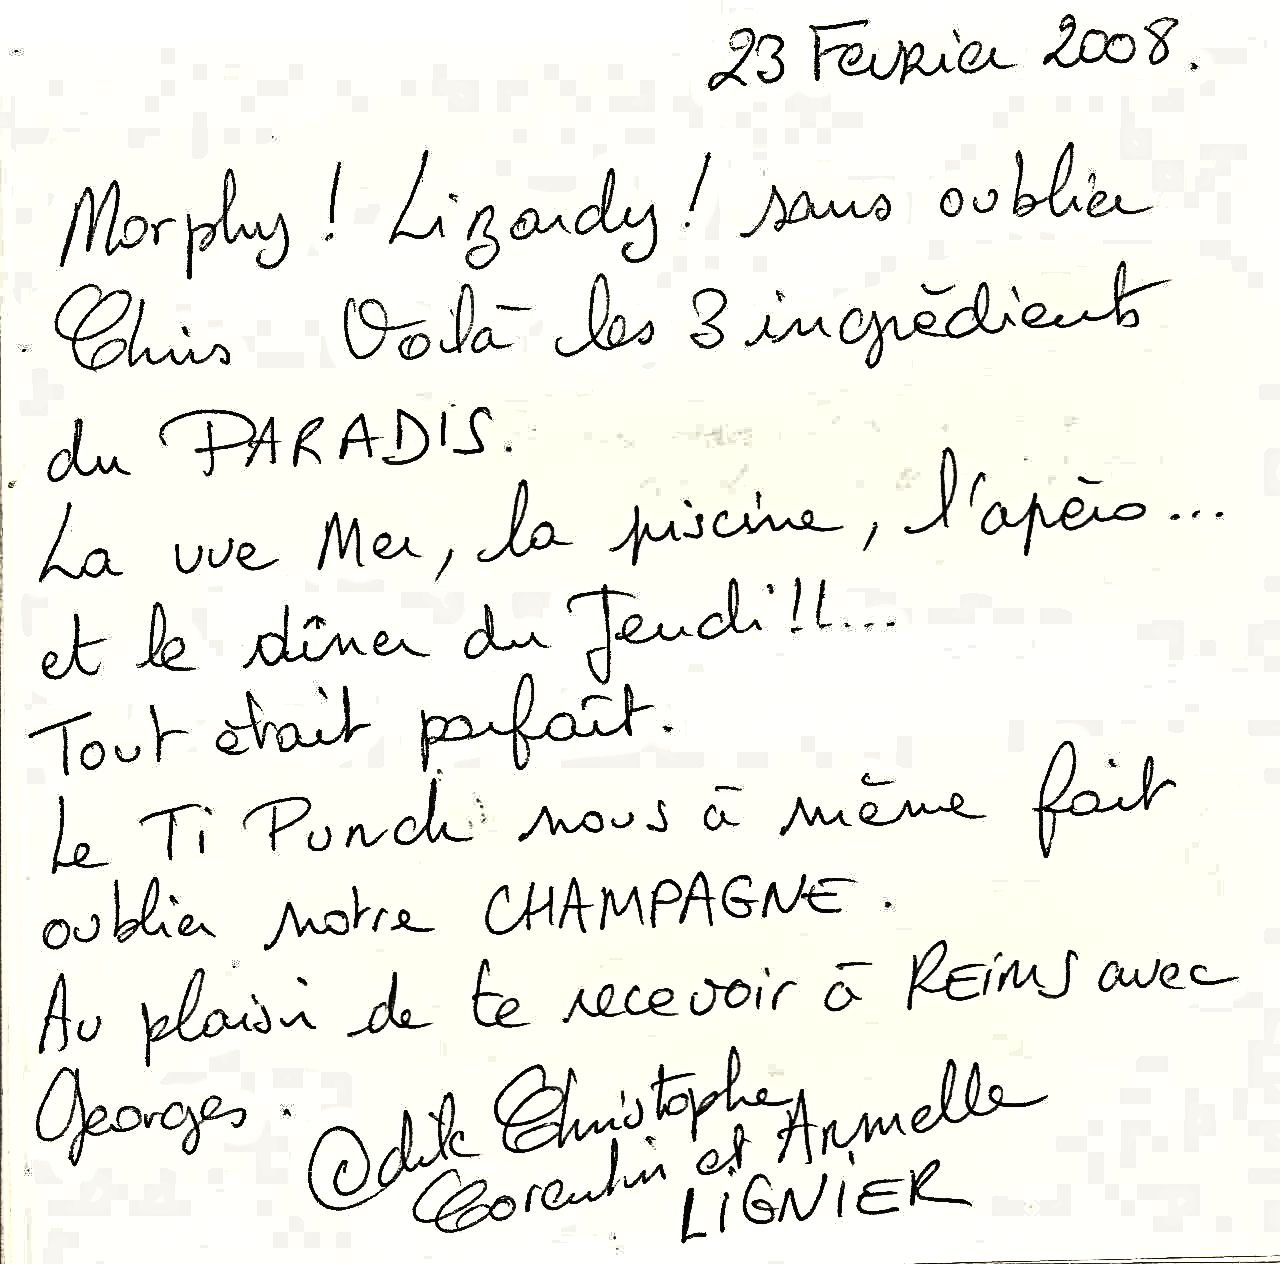 23 Fevrier 2008.
Morphy ! Lizardy ! sans oublier
Chris Voilà les 3 ingrédients
du PARADIS.
La vue Mer, la piscine, l'apéro...
et le dîner du Jeudi !!!...
Tout était parfait.
Le Ti Punch nous à même fait
oublier notre CHAMPAGNE.
Au plaisir de te recevoir à REiMS avec
Georges.
Christophe
Corentin et Armelle
LiGNiER